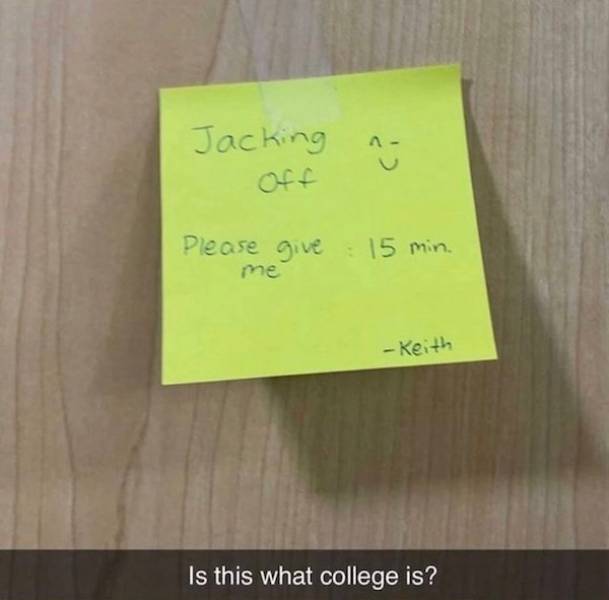 Jacking ^-
off
Please give : 15 min.
me
-Keith
Is this what college is?